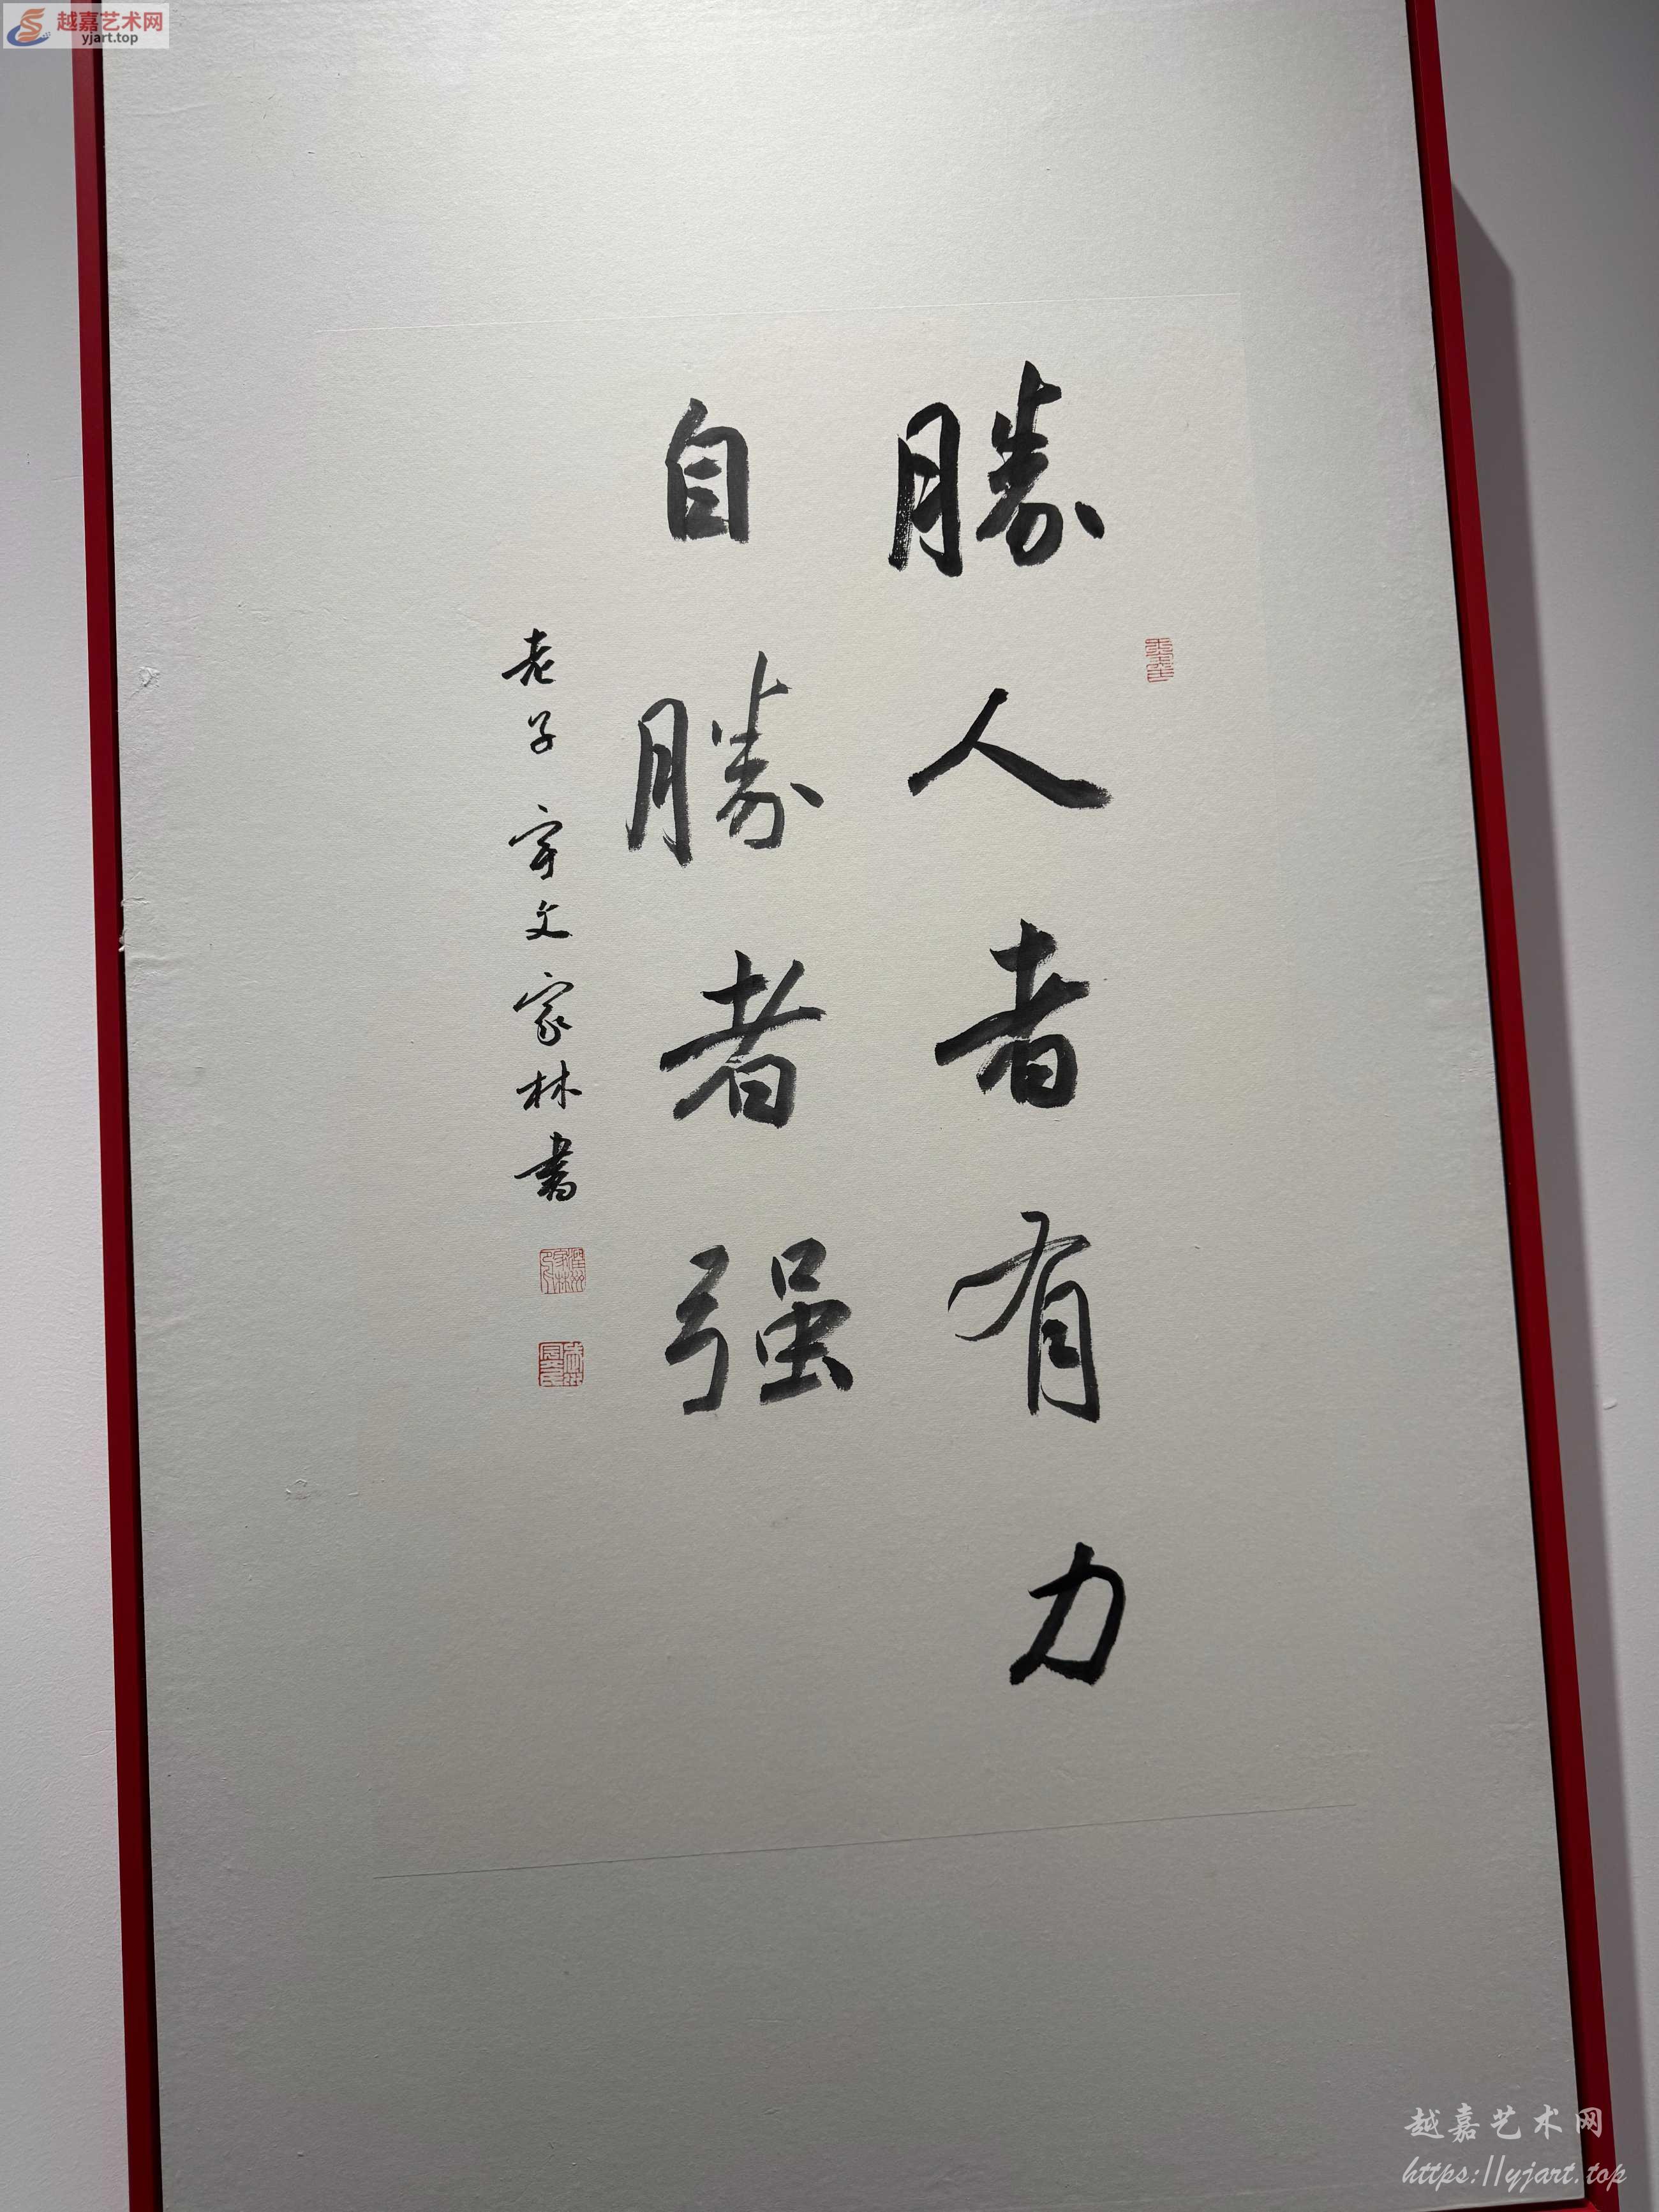 越嘉艺术网
yjart.top
勝人者有力
自勝者强
老子 宇文家林書
越嘉艺术网
https://yjart.top